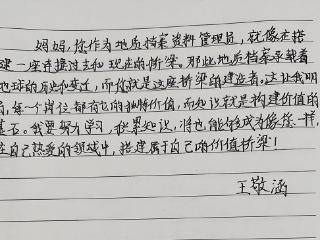 妈妈,您作为地质档案资料管理员,就像在搭
建一座连接过去和现在的桥梁。那些地质档案承载着
地球的历史和变迁,而你就是这座桥梁的建造者。这让我明
白,每一个岗位都有它的独特价值,而知识就是构建价值的
基石。我要努力学习,积累知识,将也能够成为像您一样,
在自己热爱的领域中,搭建属于自己的价值桥梁!
王敬涵